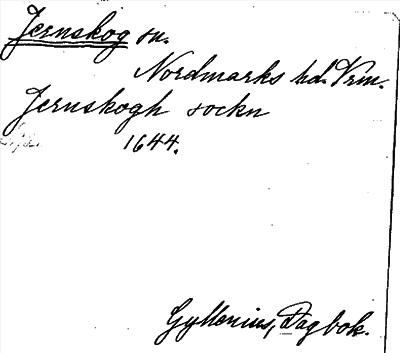 Jernskog sn.
Nordmarks hd. Vrm.
Jernskogh sockn
1644.
Gyllenius, Dagbok.